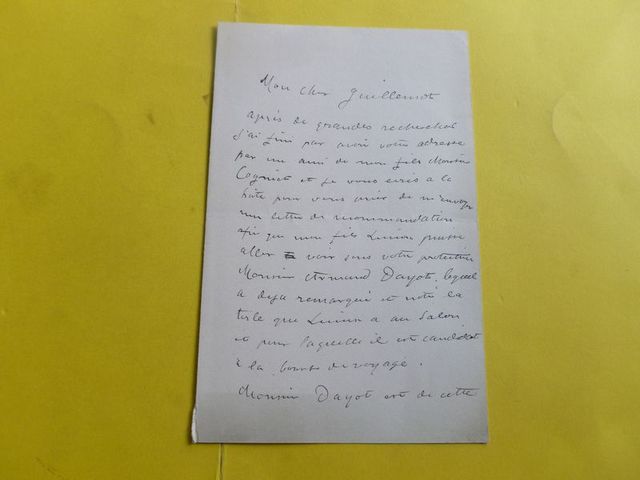 Mon cher Guillemet
après de grandes recherches
j'ai fini par avoir votre adresse
par un ami de mon fils Monsieur
et je vous écris à la
hâte pour vous prier de m'envoyer
une lettre de recommandation
afin que mon fils Lucien puisse
aller voir sous votre protection
Monsieur Armand Dayot, lequel
a déjà remarqué et noté la
toile que Lucien a au Salon
et pour laquelle il est candidat
à la bourse de voyage.
Monsieur Dayot est de cette